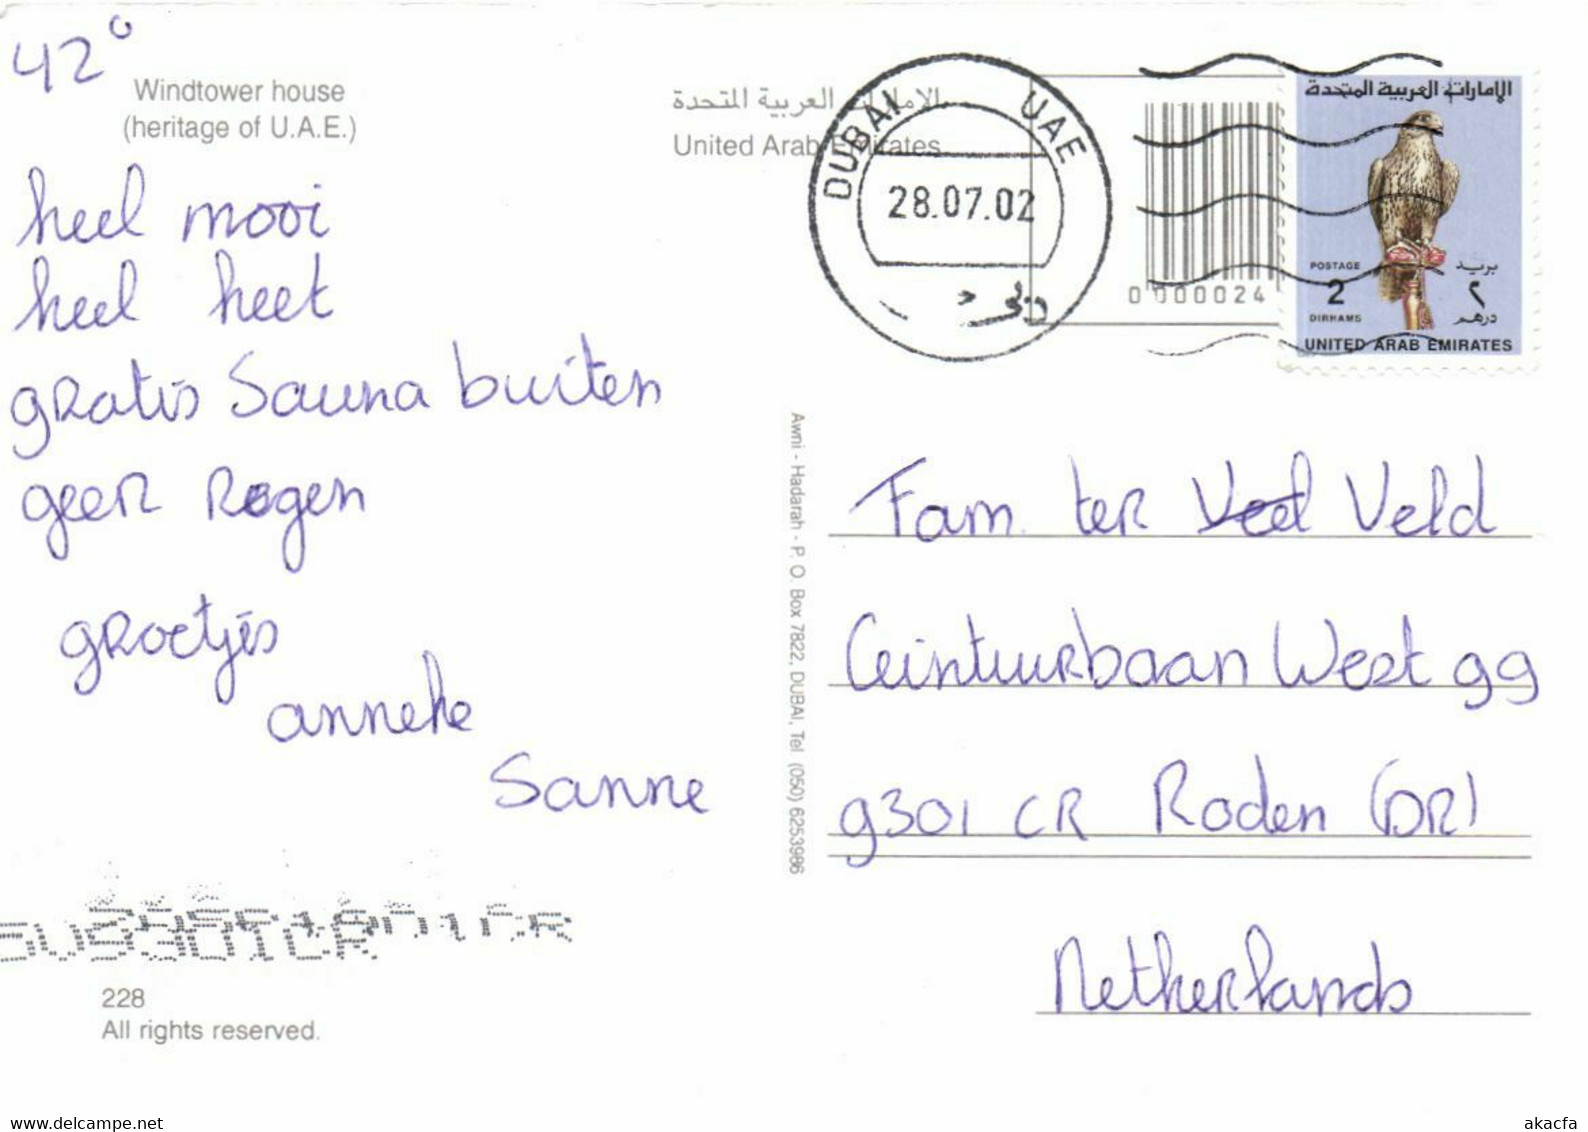 42°
Windtower house
(heritage of U.A.E.)
heel mooi
heel heet
gratis Sauna buiten
geen Regen
groetjes
anneke
Sanne
228
All rights reserved.
الامارات العربية المتحدة
United Arab Emirates
DUBAI UAE
28.07.02
دبي
0000024
الإمارات العربية المتحدة
POSTAGE بريد
2 ٢
DIRHAMS درهم
UNITED ARAB EMIRATES
Awni - Hadarah - P. O. Box 7822, DUBAI, Tel (050) 6253986
Fam. ter Veel Veld
Ceintuurbaan West 99
9301 CR Roden (DR)
Netherlands
www.delcampe.net
akacfa